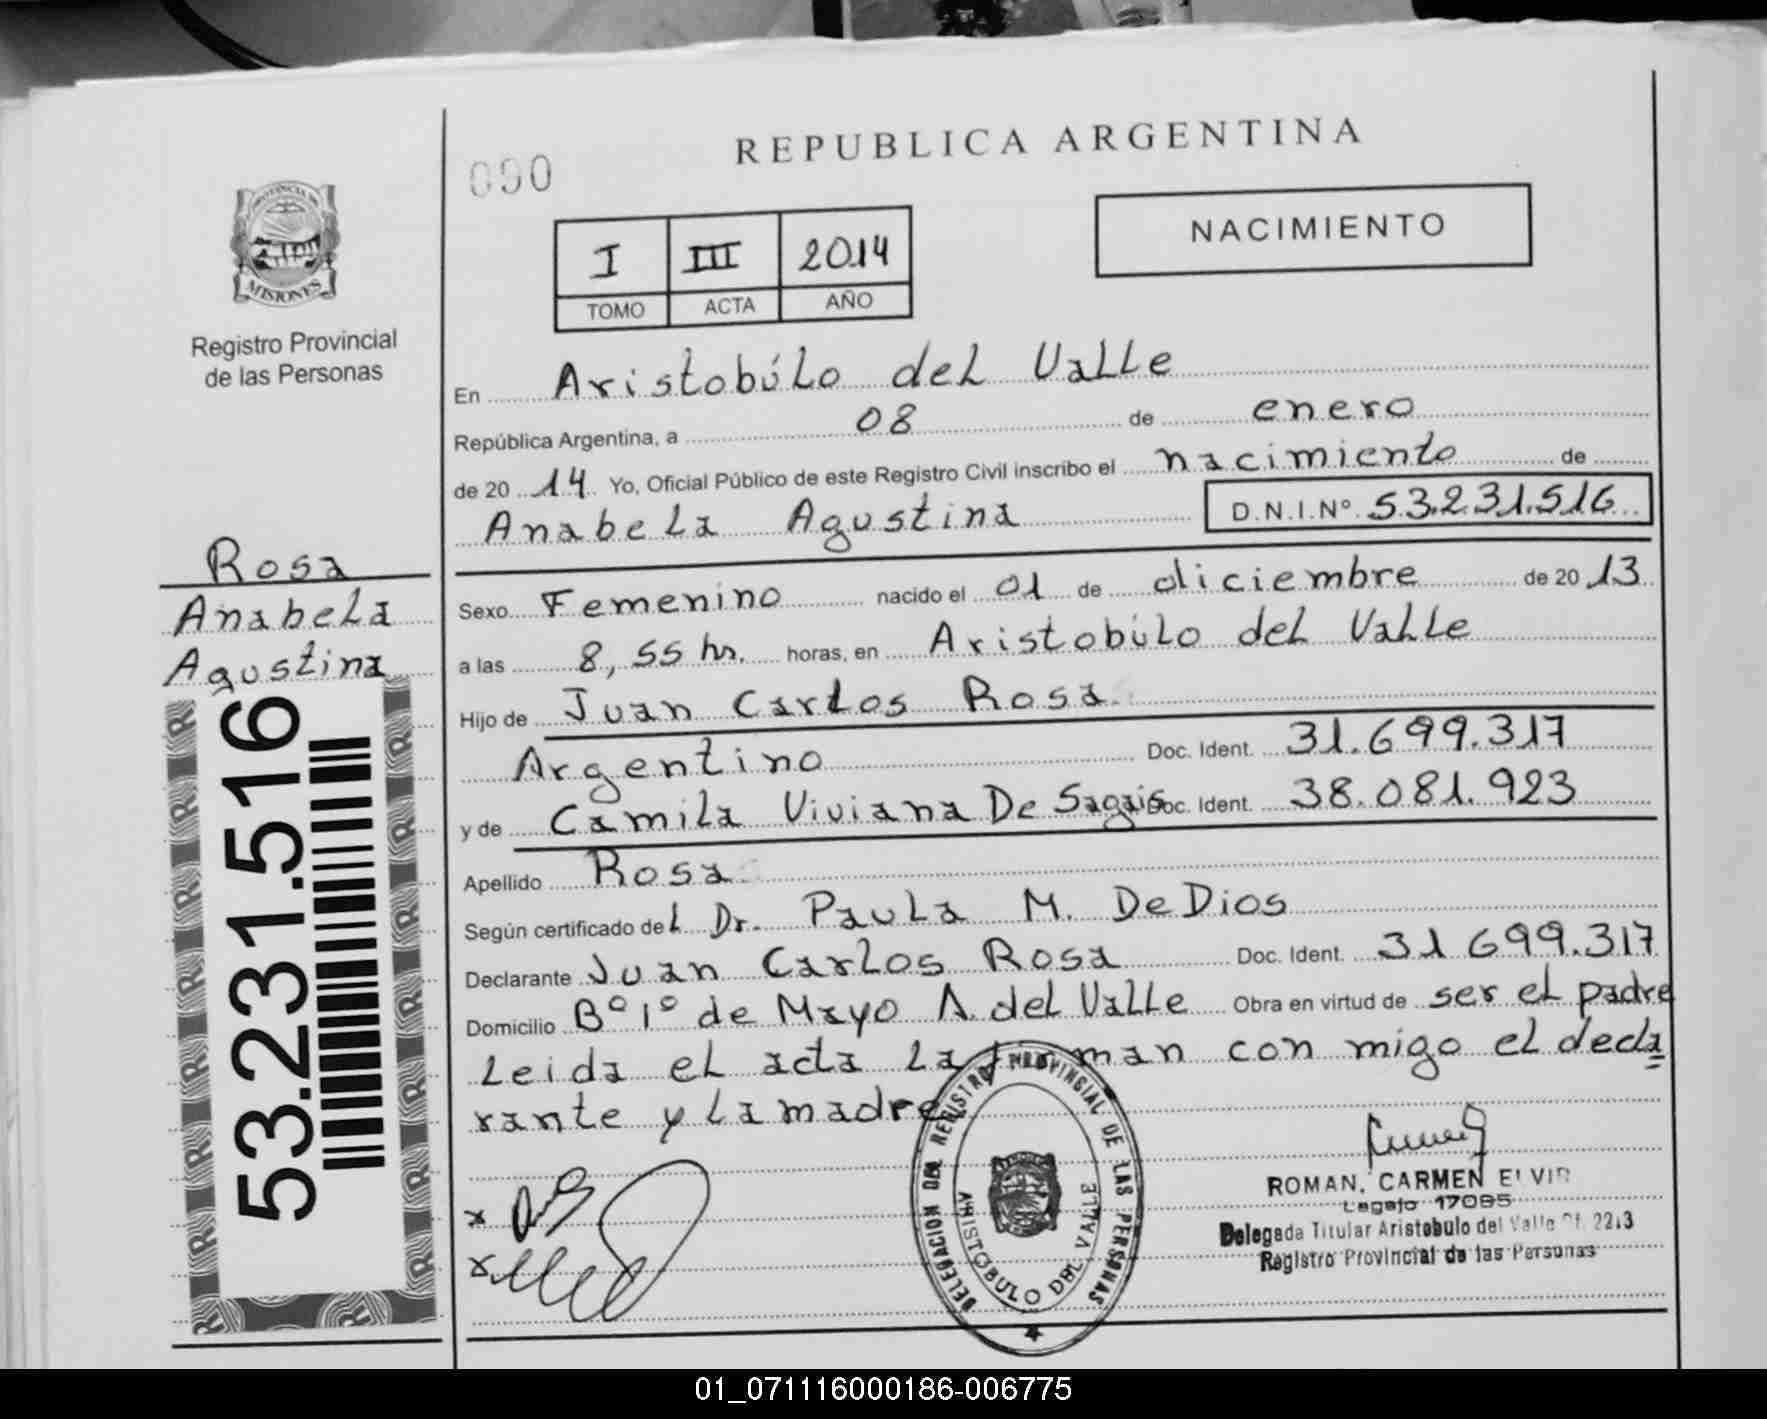 REPUBLICA ARGENTINA
090
NACIMIENTO
I III 2014
TOMO ACTA AÑO
MISIONES
Registro Provincial
de las Personas
En Aristobúlo del Valle
República Argentina, a 08 de enero
de 20 14 Yo, Oficial Público de este Registro Civil inscribo el nacimiento de
Anabela Agustina D.N.I.Nº 53.231.516
Rosa
Anabela
Agustina
53.231.516
Sexo Femenino nacido el 01 de diciembre de 20 13
a las 8,55 hs. horas, en Aristobúlo del Valle
Hijo de Juan Carlos Rosa
Argentino Doc. Ident. 31.699.317
y de Camila Viviana De Sagais Doc. Ident. 38.081.923
Apellido Rosa
Según certificado del Dr. Paula M. De Dios
Declarante Juan Carlos Rosa Doc. Ident. 31 699.317
Domicilio Bº 1º de Mayo A. del Valle Obra en virtud de ser el padre
Leida el acta la firman con migo el decla
rante y la madre
DELEGACION DEL REGISTRO PROVINCIAL DE LAS PERSONAS
ARISTOBULO DEL VALLE
ROMAN, CARMEN ELVIR
Legajo 17085
Delegada Titular Aristobulo del Valle Of. 2213
Registro Provincial de las Personas
01_071116000186-006775